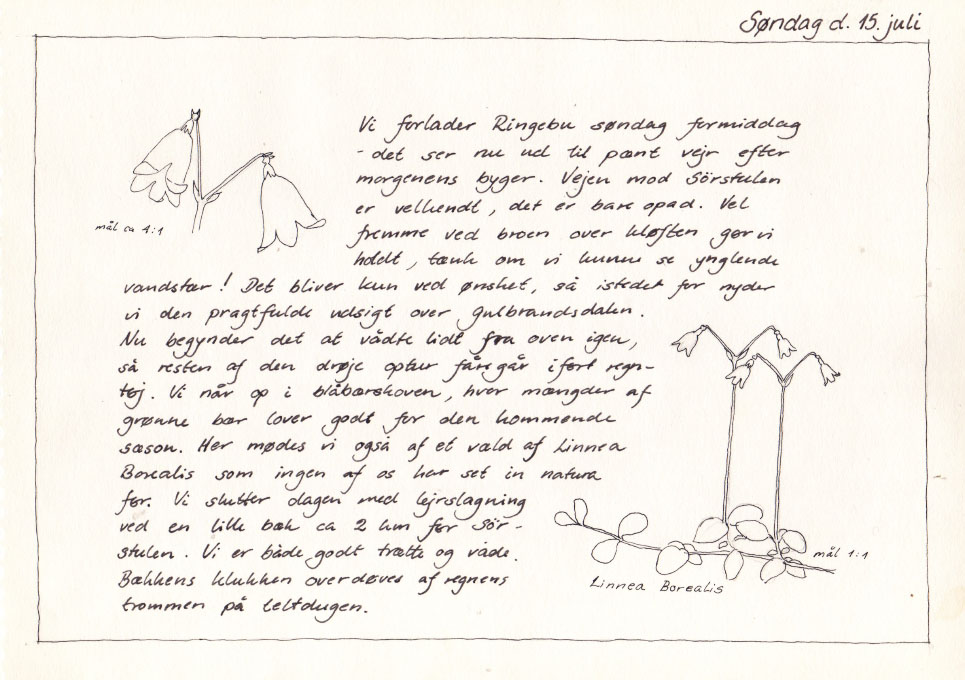 Søndag d. 15. juli
Vi forlader Ringebu søndag formiddag
- det ser nu ud til pænt vejr efter
morgenens byger. Vejen mod Sörstulen
er velkendt, det er bare opad. Vel
fremme ved broen over kløften gør vi
holdt, tænk om vi kunne se ynglende
mål ca 4:1
vandstær! Det bliver kun ved ønsket, så istedet for nyder
vi den pragtfulde udsigt over Gulbrandsdalen.
Nu begynder det at vådte lidt fra oven igen,
så resten af den drøje optur foregår iført regn-
tøj. Vi når op i blåbærskoven, hvor mængder af
grønne bær lover godt for den kommende
sæson. Her mødes vi også af et væld af Linnea
Borealis som ingen af os har set in natura
før. Vi slutter dagen med lejrslagning
ved en lille bæk ca 2 km før Sör-
stulen. Vi er både godt trætte og våde.
Bækkens klukken overdøves af regnens
trommen på teltdugen.
mål 1:1
Linnea Borealis